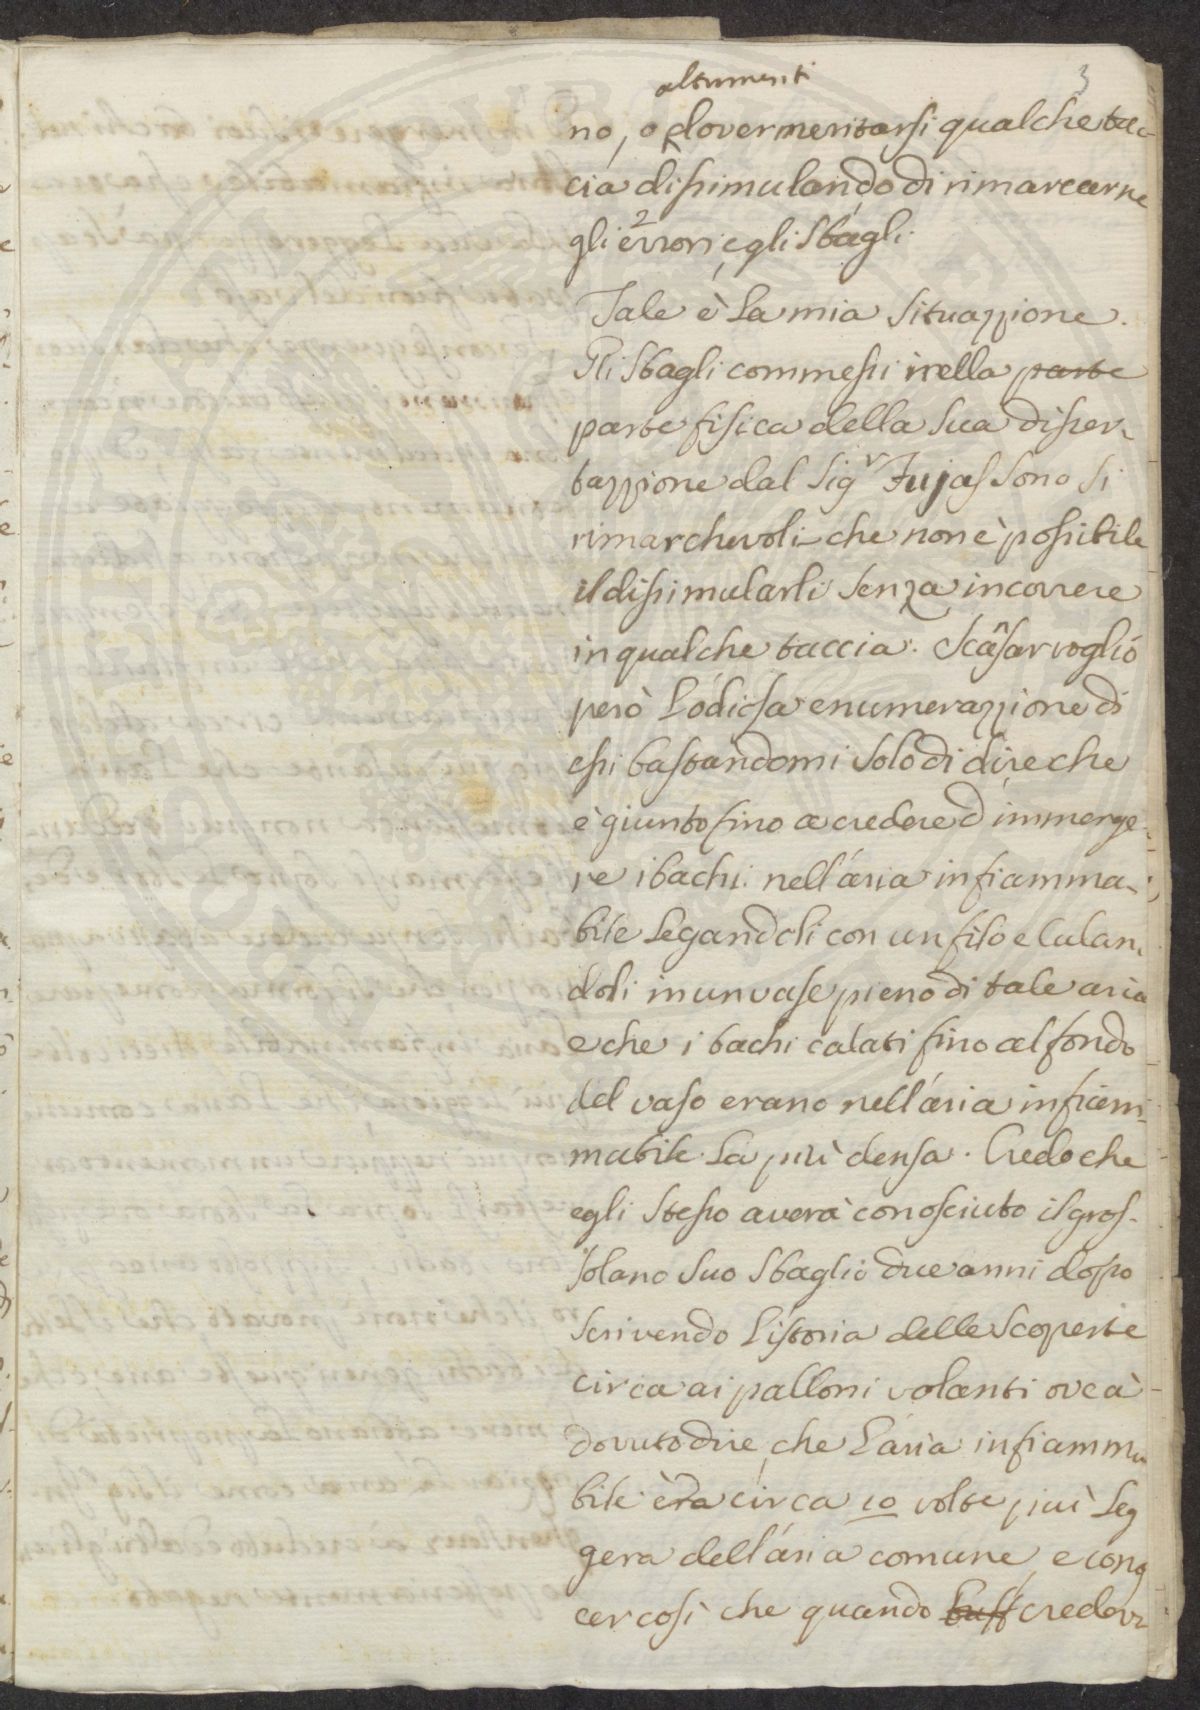 3
altrimenti
no, o dover meritarsi qualche tac-
cia dissimulando di rimarcarne
gli errori, e gli sbagli.
Tale è la mia situazzione.
Gli sbagli commessi nella parte
parte fisica della sua disser-
tazzione dal Sigr Fujas sono si
rimarchevoli che non è possibile
il dissimularli senza incorrere
in qualche taccia. Scansar voglio
però l'odiosa enumerazzione di
essi bastandomi solo di dire che
è giunto fino a credere d'immerge-
re i bachi nell'aria infiamma-
bile legandoli con un filo e calan-
doli in un vase pieno di tale aria
e che i bachi calati fino al fondo
del vaso erano nell'aria infiam-
mabile la più densa. Credo che
egli stesso averà conosciuto il gros-
solano suo sbaglio due anni dopo
scrivendo l'istoria delle scoperte
circa ai palloni volanti ove à
dovuto dire, che l'aria infiamma
bile è era circa 10 volte più leg
gera dell'aria comune, e cono
cer così che quando credeva